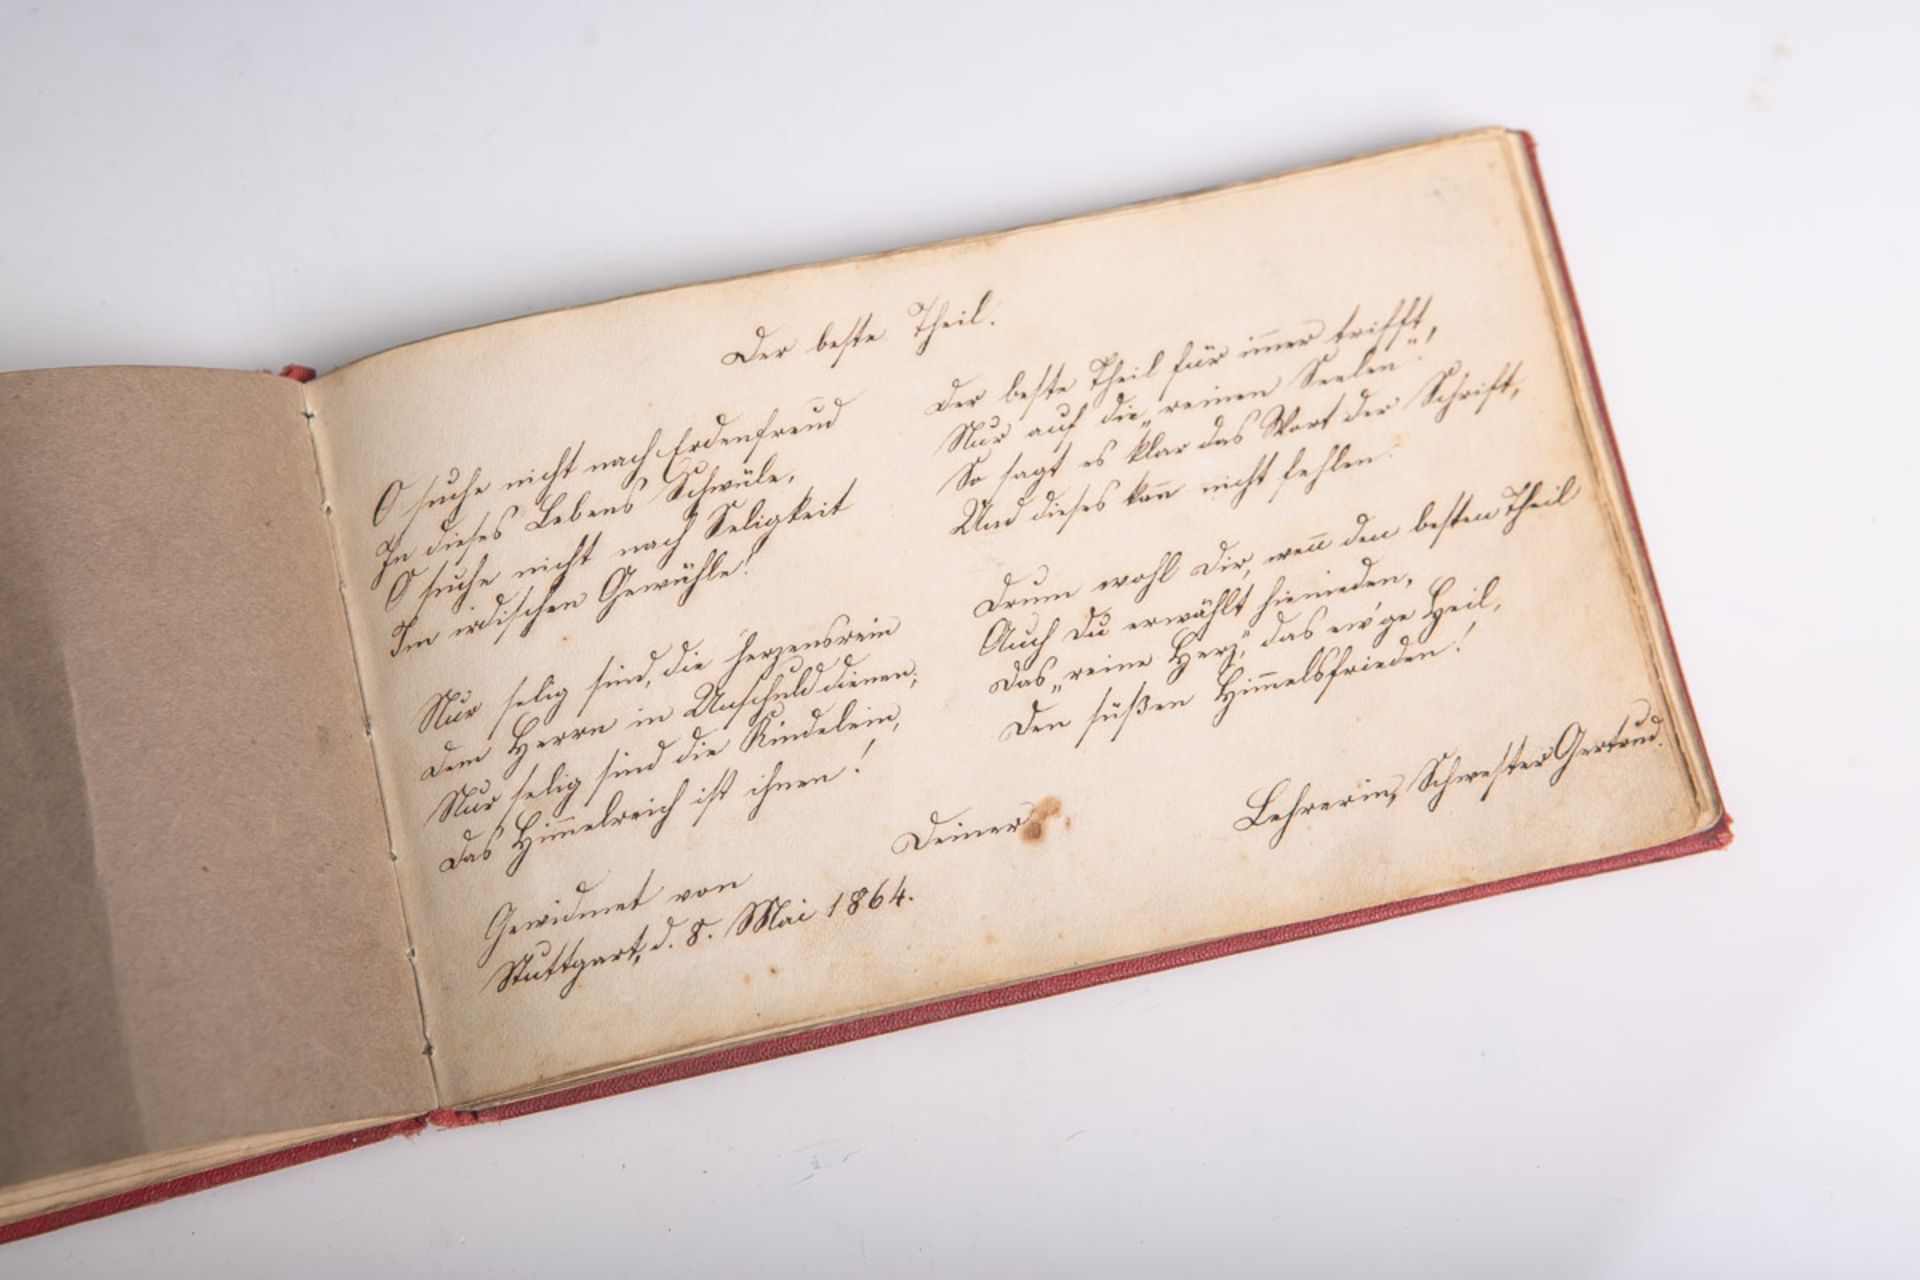 Der beste Theil.
O suche nicht nach Erdenfreud
In dieses Lebens Schwüle,
O suche nicht nach Seligkeit
Im irdischen Gewühle!
Nur selig sind, die herzensrein
Dem Herrn in Unschuld dienen;
Nur selig sind die Kindelein,
Das Him̅elreich ist ihnen!
Der beste Theil für im̅er trifft,
Nur auf die „reinen Seelen“,
So sagt es klar das Wort der Schrift,
Und dieses kan̅ nicht fehlen.
Drum wohl Dir, wen̅ den besten Theil
Auch Du erwählt hienieden,
Das „reine Herz,“ das ew'ge Heil,
Den süßen Him̅elsfrieden!
Gewidmet von Deiner Lehrerin, Schwester Gertrud.
Stuttgart, d. 8. Mai 1864.